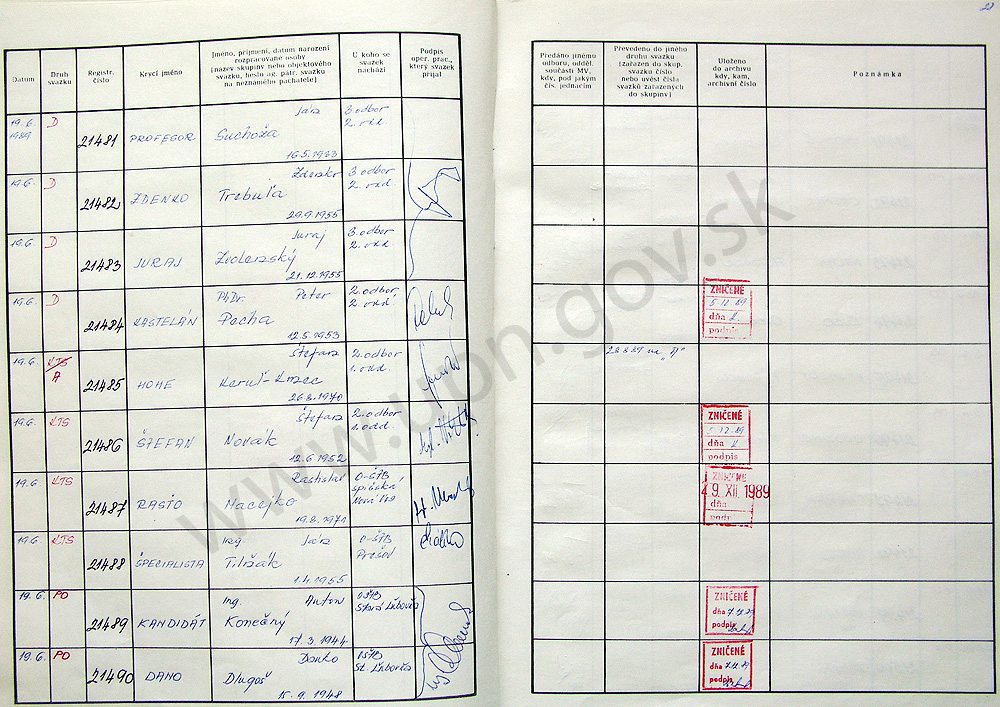 23
Datum
Druh
svazku
Registr.
číslo
Krycí jméno
Jméno, příjmení, datum narození
rozpracované osoby
[název skupiny nebo objektového
svazku, heslo ag. pátr. svazku
na neznámého pachatele]
U koho se
svazek
nachází
Podpis
oper. prac.,
který svazek
přijal
Předáno jinému
odboru, odděl.
součásti MV,
kdy, pod jakým
čís. jednacím
Převedeno do jiného
druhu svazku
[zařazen do skup.
svazku číslo
nebo uvést čísla
svazků zařazených
do skupiny]
Uloženo
do archivu
kdy, kam,
archivní číslo
Poznámka
19.6. D 3.odbor
1989 2.odd
21481 PROFESOR Suchoža
16.5.1933
19.6. D Zdenko 3.odbor
2.odd
21482 ZDENKO Trebuľa
29.9.1955
19.6. D Juraj 3.odbor
2.odd
21483 JURAJ Zvolenský
21.12.1955
19.6. D PhDr. Peter 2.odbor
2.odd
21484 KASTELÁN Pecha
12.5.1953
ZNIČENÉ
5.12.89
dňa
podpis
19.6. KTS Štefan 2.odbor
A 1.odd.
21485 HOME
26.8.1970
28.8.89 na "A"
19.6. KTS Štefan 2.odbor
1.odd
21486 ŠTEFAN Novák
12.6.1952
ZNIČENÉ
5.12.89
dňa
podpis
19.6. KTS Rastislav O-ŠTB
spišská
Nová Ves
21487 RASŤO Macejko
19.8.1971
ZNIČENÉ
19. XII. 1989
dňa
podpis
19.6. KTS Ing. O-ŠTB
Prešov
21488 ŠPECIALISTA
1.4.1955
19.6. PO Ing. Anton OŠTB
Stará Ľubovňa
21489 KANDIDÁT Konečný
17.3.1944
ZNIČENÉ
dňa 7.12.89
podpis
19.6. PO Danko OŠTB
St. Ľubovňa
21490 DANO Dlugoš
15.9.1948
ZNIČENÉ
dňa 7.12.89
podpis
www.upn.gov.sk